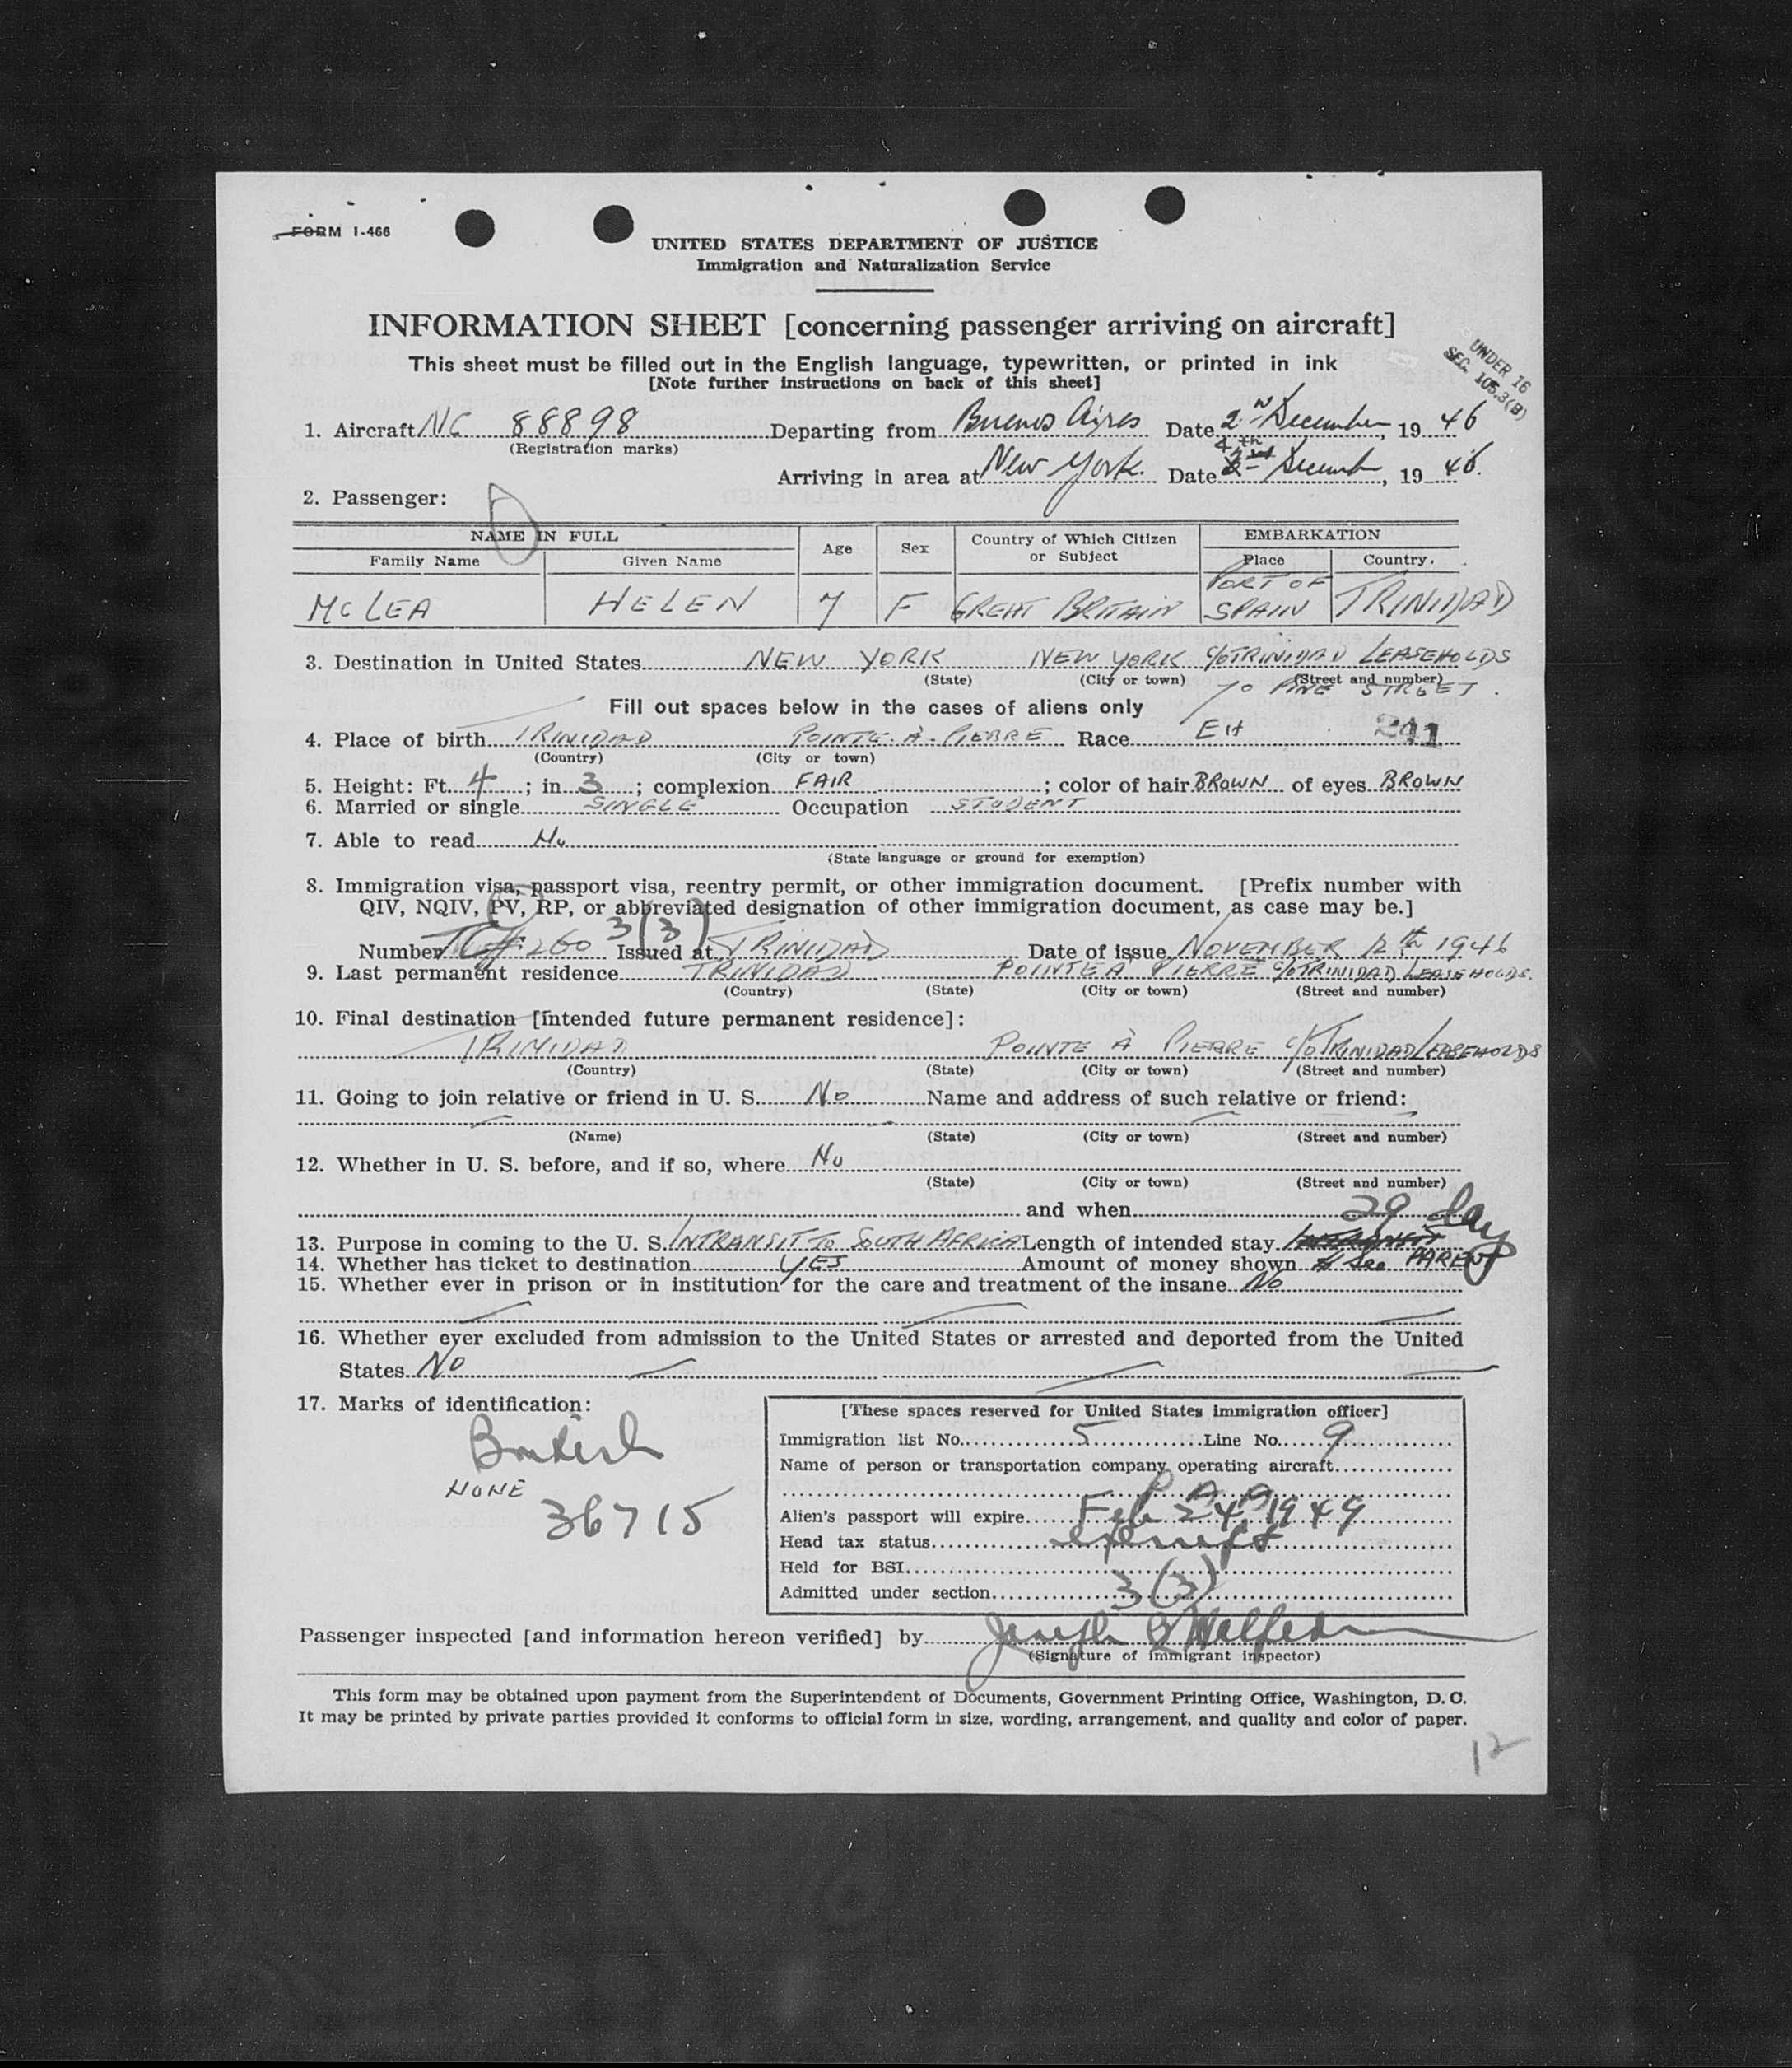 FORM I-466
UNITED STATES DEPARTMENT OF JUSTICE
Immigration and Naturalization Service
INFORMATION SHEET [concerning passenger arriving on aircraft]
This sheet must be filled out in the English language, typewritten, or printed in ink
[Note further instructions on back of this sheet]
UNDER 16
SEC. 105.3(B)
1. Aircraft NC 88898 Departing from Buenos Aires Date 2nd December, 19 46
(Registration marks)
Arriving in area at New York. Date 4th December, 19 46.
2. Passenger:
NAME IN FULL Age Sex Country of Which Citizen or Subject EMBARKATION
Family Name Given Name Place Country.
MCLEA HELEN 7 F GREAT BRITAIN PORT OF SPAIN TRINIDAD
3. Destination in United States NEW YORK NEW YORK C/O TRINIDAD LEASEHOLDS
(State) (City or town) (Street and number)
70 PINE STREET.
Fill out spaces below in the cases of aliens only
4. Place of birth TRINIDAD POINTE-À-PIERRE Race EH 241
(Country) (City or town)
5. Height: Ft. 4; in 3; complexion FAIR; color of hair BROWN of eyes BROWN
6. Married or single SINGLE Occupation STUDENT
7. Able to read No
(State language or ground for exemption)
8. Immigration visa, passport visa, reentry permit, or other immigration document. [Prefix number with
QIV, NQIV, PV, RP, or abbreviated designation of other immigration document, as case may be.]
3(3)
Number 260 Issued at TRINIDAD Date of issue NOVEMBER 12th 1946
9. Last permanent residence TRINIDAD POINTE A PIERRE C/O TRINIDAD LEASEHOLDS.
(Country) (State) (City or town) (Street and number)
10. Final destination [intended future permanent residence]:
TRINIDAD POINTE À PIERRE C/O TRINIDAD LEASEHOLDS
(Country) (State) (City or town) (Street and number)
11. Going to join relative or friend in U. S. No Name and address of such relative or friend:
(Name) (State) (City or town) (Street and number)
12. Whether in U. S. before, and if so, where No
(State) (City or town) (Street and number)
and when
29 days
13. Purpose in coming to the U. S. INTRANSIT TO SOUTH AFRICA Length of intended stay INTRANSIT
14. Whether has ticket to destination YES Amount of money shown See PARENT
15. Whether ever in prison or in institution for the care and treatment of the insane No
16. Whether ever excluded from admission to the United States or arrested and deported from the United
States No
17. Marks of identification:
British
NONE
36715
[These spaces reserved for United States immigration officer]
Immigration list No. 5 Line No. 9
Name of person or transportation company operating aircraft
P A A
Alien's passport will expire Feb 24, 1949
Head tax status exempt
Held for BSI
Admitted under section 3(3)
Passenger inspected [and information hereon verified] by Joseph
(Signature of immigrant inspector)
This form may be obtained upon payment from the Superintendent of Documents, Government Printing Office, Washington, D. C.
It may be printed by private parties provided it conforms to official form in size, wording, arrangement, and quality and color of paper.
12